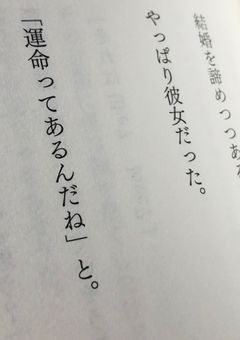 結婚を諦めつつある
やっぱり彼女だった。
「運命ってあるんだね」と。